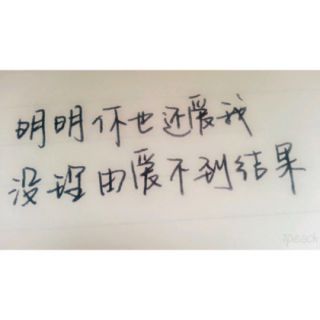 明明你也还爱我
没理由爱不到结果